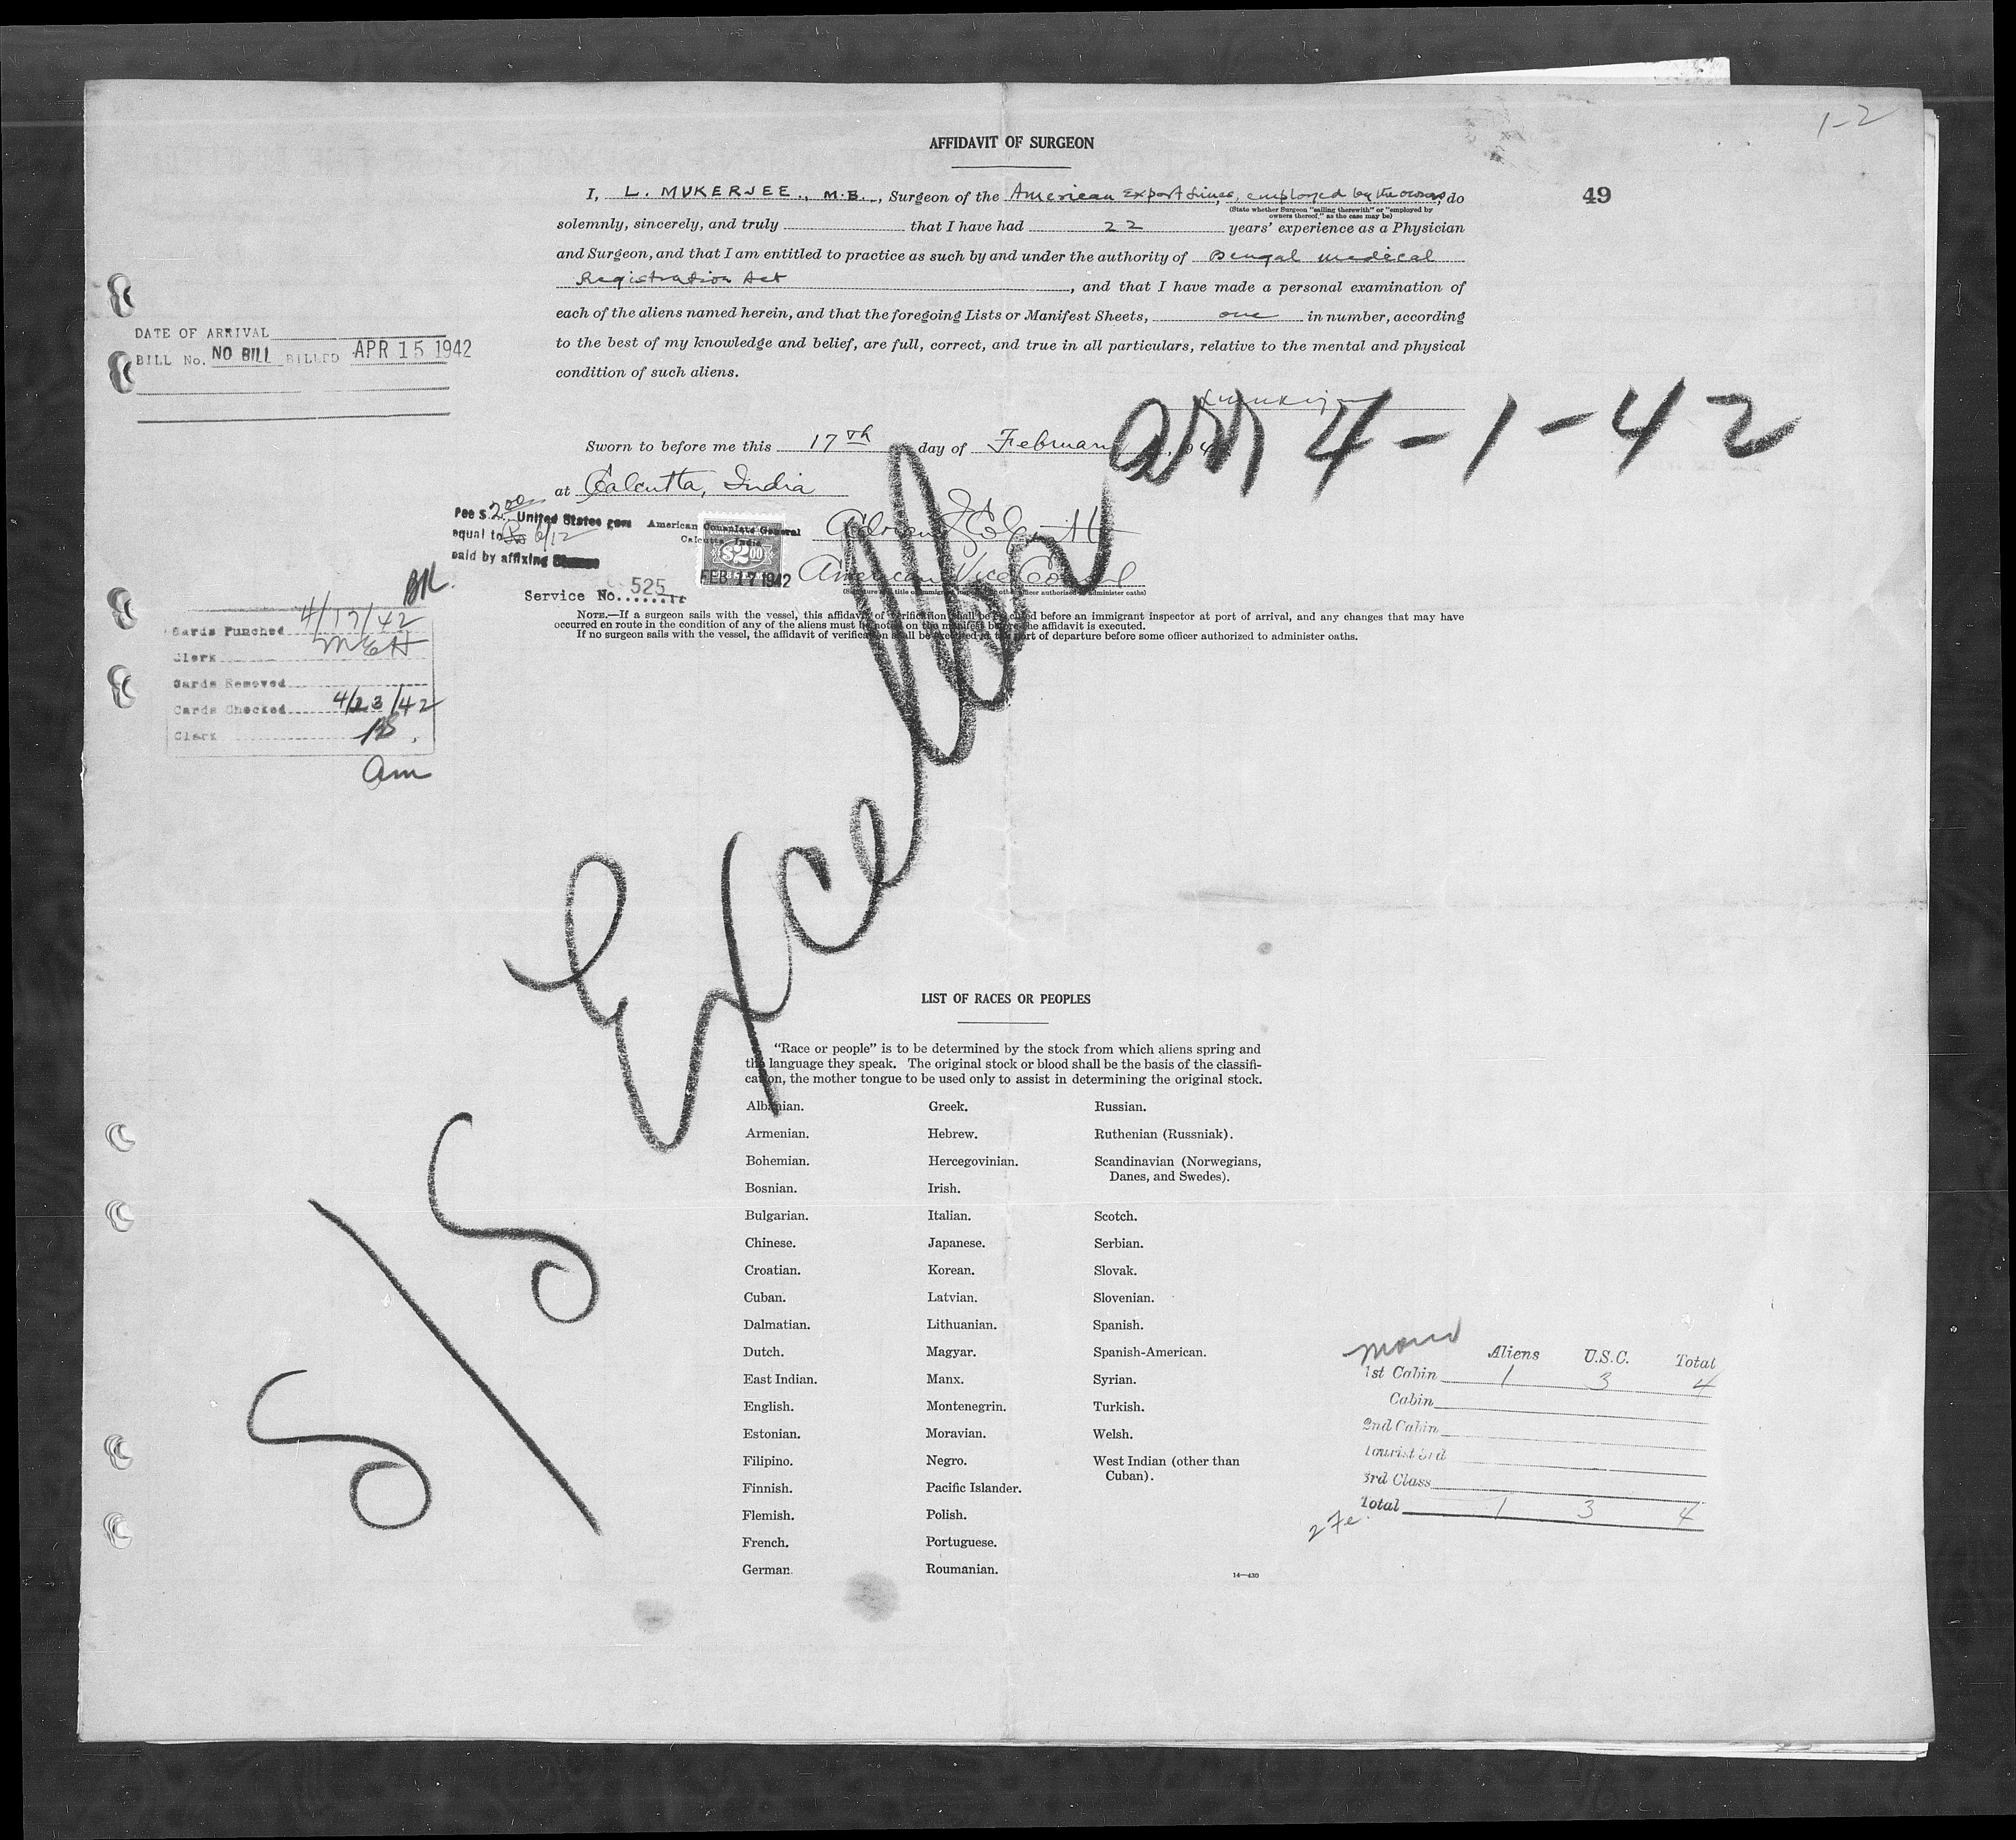 1-2
AFFIDAVIT OF SURGEON
49
I, L. MUKERJEE., M.B., Surgeon of the American Export Lines, employed by the owners, do
(State whether Surgeon "sailing therewith" or "employed by
owners thereof," as the case may be)
solemnly, sincerely, and truly that I have had 22 years' experience as a Physician
and Surgeon, and that I am entitled to practice as such by and under the authority of Bengal medical
Registration Act, and that I have made a personal examination of
each of the aliens named herein, and that the foregoing Lists or Manifest Sheets, one in number, according
to the best of my knowledge and belief, are full, correct, and true in all particulars, relative to the mental and physical
condition of such aliens.
DATE OF ARRIVAL
BILL No. NO BILL BILLED APR 15 1942
arr 4-1-42
Sworn to before me this 17th day of February
at Calcutta, India
Fee $ 2.00 United States
equal to Rs 6/12
paid by affixing
American Consulate General
Calcutta, India
$2.00
FEB 17 1942
American Vice Consul
Service No. 525
NOTE.—If a surgeon sails with the vessel, this affidavit of verification shall be executed before an immigrant inspector at port of arrival, and any changes that may have
occurred en route in the condition of any of the aliens must be noted on the manifest before the affidavit is executed.
If no surgeon sails with the vessel, the affidavit of verification shall be executed at the port of departure before some officer authorized to administer oaths.
BK.
Cards Punched 4/17/42
Clerk MEH
Cards Removed
Cards Checked 4/23/42
Clerk
am
S/S Excalibur
LIST OF RACES OR PEOPLES
"Race or people" is to be determined by the stock from which aliens spring and
the language they speak. The original stock or blood shall be the basis of the classifi-
cation, the mother tongue to be used only to assist in determining the original stock.
Albanian. Greek. Russian.
Armenian. Hebrew. Ruthenian (Russniak).
Bohemian. Hercegovinian. Scandinavian (Norwegians,
Danes, and Swedes).
Bosnian. Irish.
Bulgarian. Italian. Scotch.
Chinese. Japanese. Serbian.
Croatian. Korean. Slovak.
Cuban. Latvian. Slovenian.
Dalmatian. Lithuanian. Spanish.
Dutch. Magyar. Spanish-American.
East Indian. Manx. Syrian.
English. Montenegrin. Turkish.
Estonian. Moravian. Welsh.
Filipino. Negro. West Indian (other than
Cuban).
Finnish. Pacific Islander.
Flemish. Polish.
French. Portuguese.
German. Roumanian.
14—430
Aliens U.S.C. Total
1st Cabin 1 3 4
Cabin
2nd Cabin
Tourist 3rd
3rd Class
Total 1 3 4